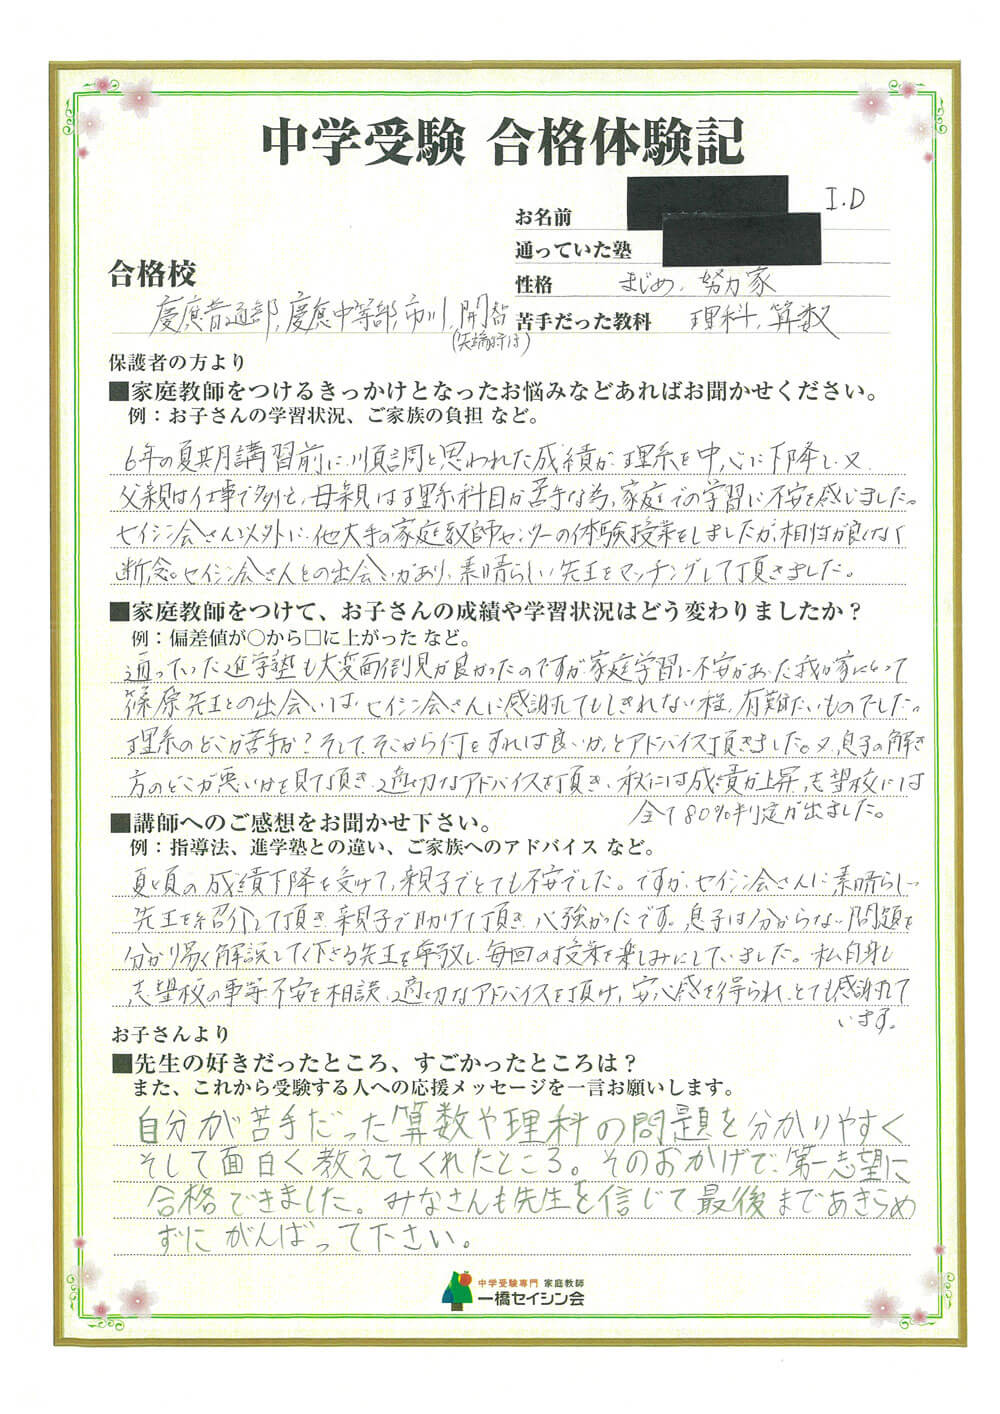 中学受験 合格体験記
お名前 I.D
通っていた塾
性格 まじめ、努力家
合格校
慶應普通部、慶應中等部、市川、開智
(先端特待)
苦手だった教科 理科、算数
保護者の方より
■家庭教師をつけるきっかけとなったお悩みなどあればお聞かせください。
例：お子さんの学習状況、ご家族の負担 など。
6年の夏期講習前に、順調と思われた成績が理系を中心に下降し、又、
父親は仕事で多忙、母親は理系科目が苦手な為、家庭での学習に不安を感じました。
セイシン会さん以外に、他大手の家庭教師センターの体験授業をしましたが、相性が良くなく
断念。セイシン会さんとの出会いがあり、素晴らしい先生をマッチングして頂きました。
■家庭教師をつけて、お子さんの成績や学習状況はどう変わりましたか？
例：偏差値が○から□に上がった など。
通っていた進学塾も大変面倒見が良かったのですが、家庭学習に不安があった我が家にとって
篠原先生との出会いは、セイシン会さんに感謝してもしきれない程、有難たいものでした。
理系のどこが苦手か？そして、そこから何をすれば良いか、とアドバイス頂きました。又、息子の解き
方のどこが悪いかを見て頂き、適切なアドバイスを頂き、秋には成績が上昇、志望校には
全て80％判定が出ました。
■講師へのご感想をお聞かせ下さい。
例：指導法、進学塾との違い、ご家族へのアドバイス など。
夏頃の成績下降を受けて、親子でとても不安でした。ですが、セイシン会さんに素晴らしい
先生を紹介して頂き、親子で助けて頂き、心強かったです。息子は分からない問題を
分かり易く解説して下さる先生を尊敬し、毎回の授業を楽しみにしていました。私自身も
志望校の事等不安を相談、適切なアドバイスを頂け、安心感を得られ、とても感謝して
います。
お子さんより
■先生の好きだったところ、すごかったところは？
また、これから受験する人への応援メッセージを一言お願いします。
自分が苦手だった算数や理科の問題を分かりやすく
そして面白く教えてくれたところ。そのおかげで、第一志望に
合格できました。みなさんも先生を信じて最後まであきらめ
ずにがんばって下さい。
中学受験専門 家庭教師
一橋セイシン会